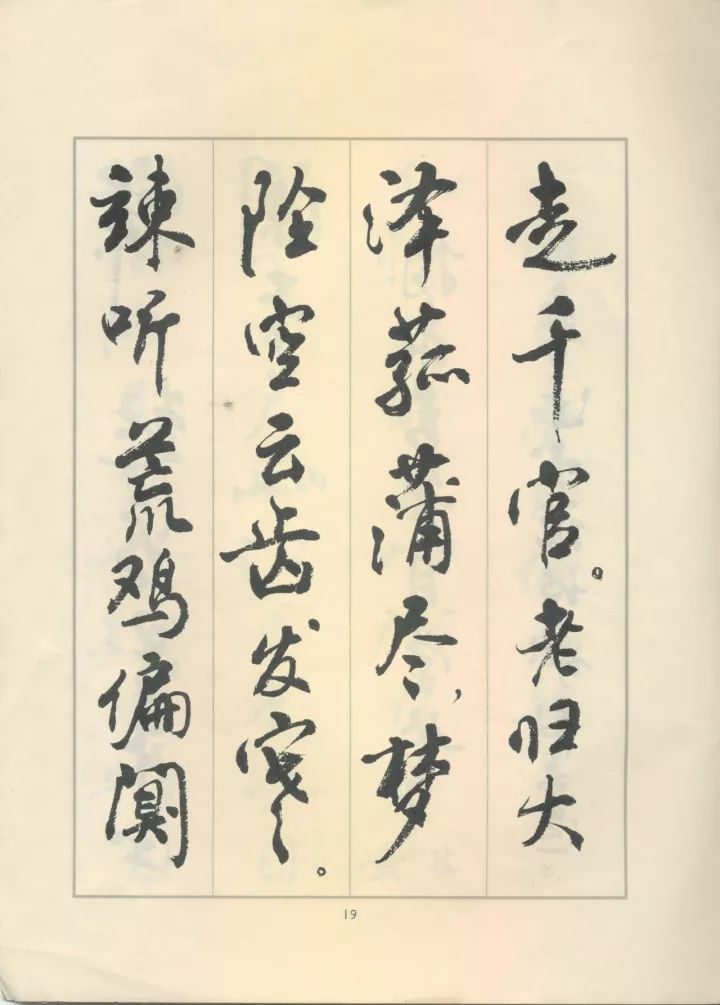 走千官。老归大
泽菰蒲尽，梦
险空云齿发寒。
竦听荒鸡偏阒
19